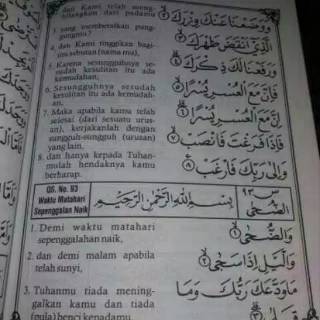 dan Kami telah meng-
hilangkan dari padamu
3. yang memberatkan pang-
gungmu?
4. dan Kami tinggikan bagi-
mu sebutan (nama)mu,
5. Karena sesungguhnya se-
sudah kesulitan itu ada
kemudahan,
6. Sesungguhnya sesudah
kesulitan itu ada kemudah-
an.
7. Maka apabila kamu telah
selesai (dari sesuatu urus-
an), kerjakanlah dengan
sungguh-sungguh (urusan)
yang lain.
8. dan hanya kepada Tuhan-
mulah hendaknya kamu
berharap.
وَوَضَعْنَا عَنْكَ وِزْرَكَ ٢
الَّذِيْٓ اَنْقَضَ ظَهْرَكَ ٣
وَرَفَعْنَا لَكَ ذِكْرَكَ ٤
فَاِنَّ مَعَ الْعُسْرِ يُسْرًا ٥
اِنَّ مَعَ الْعُسْرِ يُسْرًا ٦
فَاِذَا فَرَغْتَ فَانْصَبْ ٧
وَاِلٰى رَبِّكَ فَارْغَبْ ٨
QS. No. 93
Waktu Matahari
Sepenggalan Naik
بِسْمِ اللهِ الرَّحْمٰنِ الرَّحِيْمِ
س ٩٣
الضُّحٰى
1. Demi waktu matahari
sepenggalahan naik,
2. dan demi malam apabila
telah sunyi,
3. Tuhanmu tiada mening-
galkan kamu dan tiada
(pula) benci kepadamu.
وَالضُّحٰى ١
وَالَّيْلِ اِذَا سَجٰى ٢
مَا وَدَّعَكَ رَبُّكَ وَمَا
قَلٰى ٣